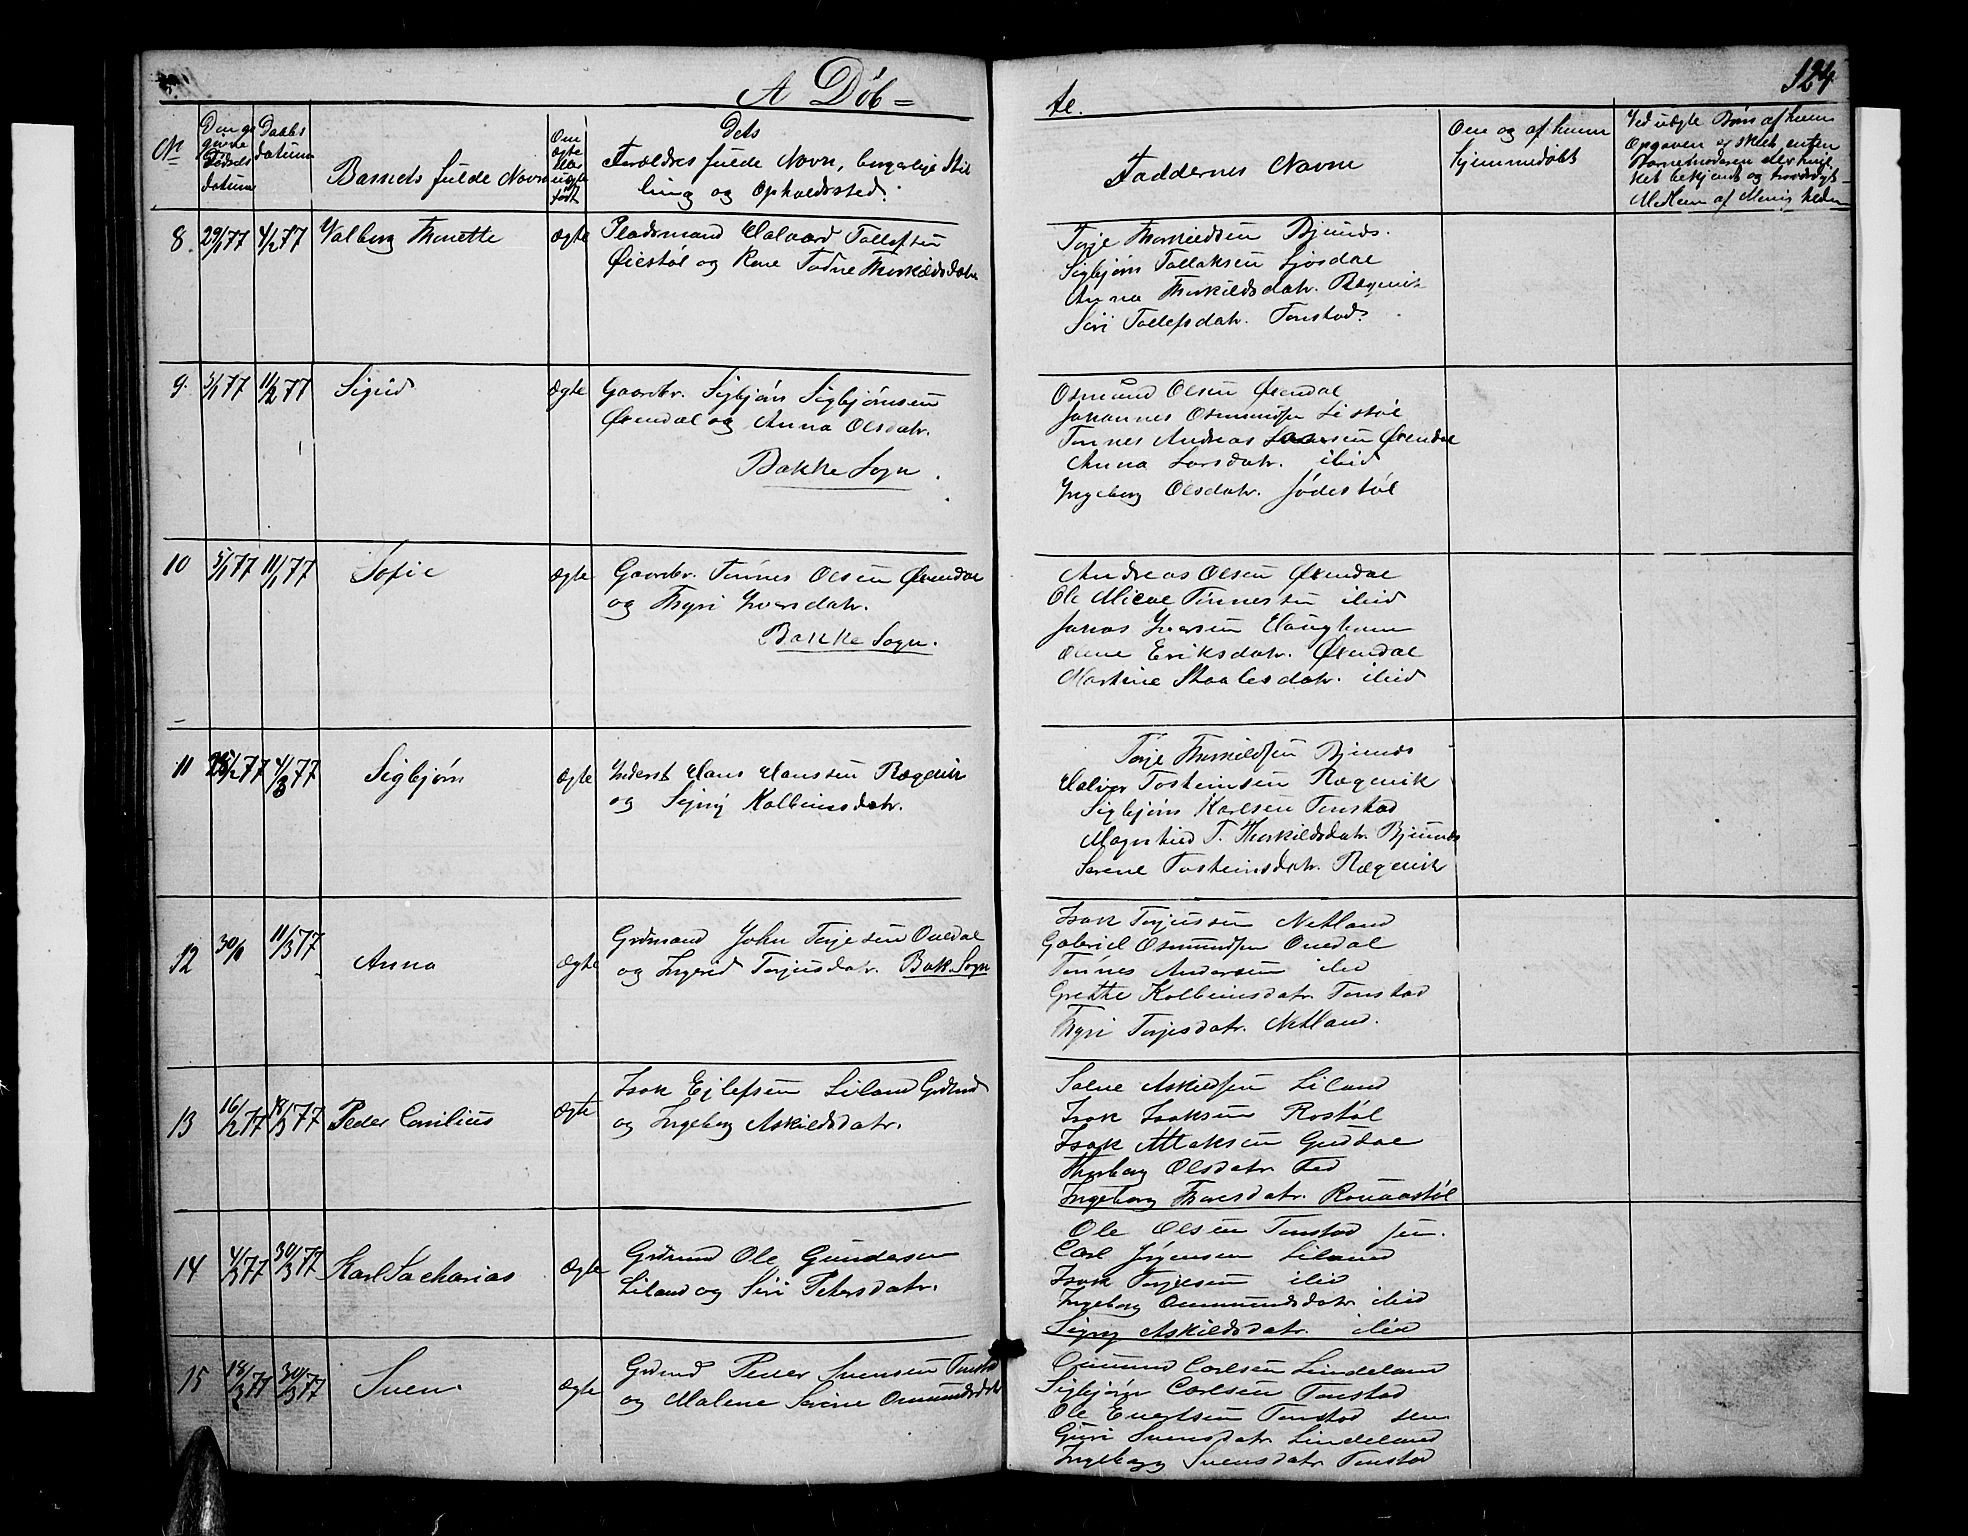 A Døb=
te.
124
No
Den ge
givne
Fødsels
datum
Daabs
datum
Barnets fulde Navn
Om
ægte
eller
uægte
født
Dets
Forældres fulde Navn, borgerlige Stil
ling og Opholdssted.
Faddernes Navne
Om og af hvem
hjemmedøbt
Ved uægte Børn af hvem
Opgaven er skeet, enten
Barnemoderen eller
ket bekjendt og troværdigt
Medlem af Menigheden
8. 29/1 77 4/2 77 Valborg Thonette ægte Pladsmand Halvard Tollefsen
Øiestøl og Kone Todne Thorkildsdatr
Torje Thorkildsen Bjunes.
Sigbjørn Tallaksen Josdal
Anna Thorkildsdatr. Rægevik
Siri Tollefsdatr. Tonstad.
9. 5/1 77 11/2 77 Sigrid ægte Gaardbr. Sigbjørn Sigbjørnsen
Øxendal og Anna Olsdatr.
Bakke Sogn.
Osmund Olsen Øxendal
Johannes Osmundsen Listøl
Tønnes Andreas Larsen Øxendal
Anna Larsdatr. ibid
Ingeborg Olsdatr. Jødestøl
10 5/1 77 11/1 77 Sofie ægte Gaardbr. Tønnes Olsen Øxendal
og Thyri Iversdatr.
Bakke Sogn.
Andreas Olsen Øxendal
Ole Mical Tønnesen ibid
Jonas Iversen Haugham
Anne Eriksdatr. Øxendal
Martine Staalesdatr. ibid
11 77 4/3 77 Sigbjørn ægte Inderst Hans Hanssen Rægevik
og Signy Kolbeinsdatr.
Torje Thorkildsen Bjunes
Halvor Tosteinsen Rægevik
Sigbjørn Karlsen Tonstad
Magnhild T. Thorkildsdatr. Bjunes
Serene Tosteinsdatr. Rægevik
12 30/1 11/3 77 Anna ægte Grdmand John Torjesen Ovedal
og Ingrid Torjusdatr. Bak. Sogn
Isak Torjussen Netland
Gabriel Osmundsen Ovedal
Tønnes Andersen ibid
Grethe Kolbeinsdatr. Tonstad
Thyri Torjesdatr. Netland.
13 16/2 77 18/3 77 Peder Conilius ægte Isak Ejlefsen Liland Grdmd
og Ingeborg Askildsdatr.
Salve Askildsen Liland
Isak Isaksen Rostøl
Isak Atlaksen Guddal
Thorborg Olsdatr. Fed
Ingeborg Thoresdatr.
14 4/3 77 30/3 77 Karl Sacharias ægte Grdmd Ole Gundersen
Liland og Siri Petersdatr.
Ole Olsen Tonstad jun.
Carl Jørgensen Liland
Isak Torjesen ibid
Ingeborg Ommundsdatr. ibid
Signy Askildsdatr. ibid
15 18/3 77 30/3 77 Sven ægte Grdmd Peder Svensen Tonstad
og Malene Serine Omundsdatr
Omund Carlsen Lindeland
Sigbjørn Carlsen Tonstad
Ole Evertsen Tonstad sen
Guri Svensdatr. Lindeland
Ingeborg Svensdatr. Tonstad